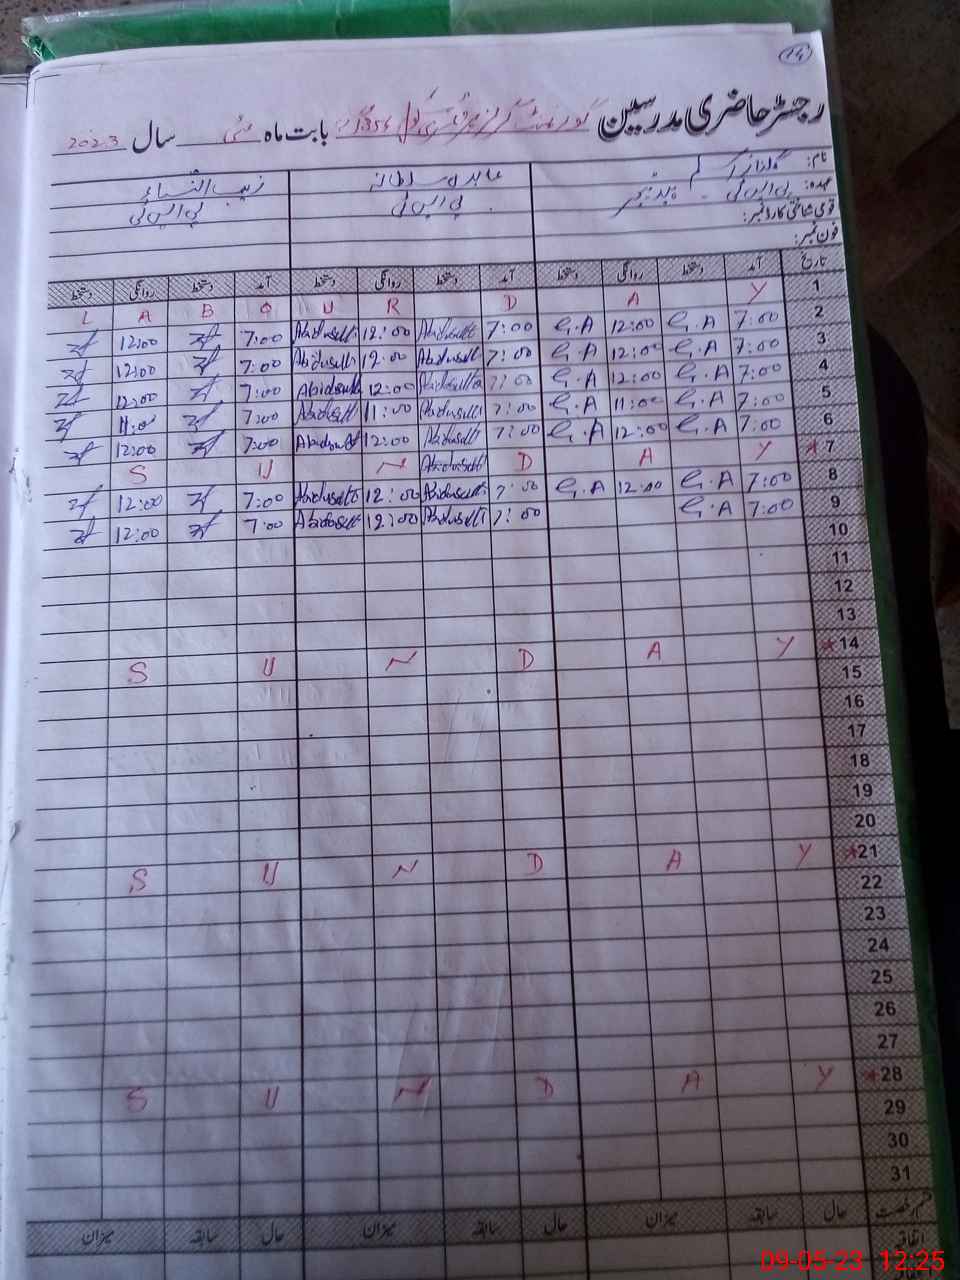 14
رجسٹر حاضری مدرسین گورنمنٹ گرلز پرائمری سکول بابت ماہ مئی سال 2023
نام: عابدہ سلطانہ زیب النساء
عہدہ: پی ایس ٹی پی ایس ٹی پی ایس ٹی
قومی شناختی کارڈ نمبر:
فون نمبر:
تاریخ آمد دستخط روانگی دستخط آمد دستخط روانگی دستخط آمد دستخط روانگی دستخط
L A B O U R D A Y 1
12:00 7:00 Abidasulta 12:00 Abidasulta 7:00 G.A 12:00 G.A 7:00 2
12:00 7:00 Abidasulta 12:00 Abidasulta 7:00 G.A 12:00 G.A 7:00 3
12:00 7:00 Abidasulta 12:00 Abidasulta 7:00 G.A 12:00 G.A 7:00 4
11:00 7:00 Abidasulta 11:00 Abidasulta 7:00 G.A 11:00 G.A 7:00 5
12:00 7:00 Abidasulta 12:00 Abidasulta 7:00 G.A 12:00 G.A 7:00 6
S U N Abidasulta D A Y *7
12:00 7:00 Abidasulta 12:00 Abidasulta 7:00 G.A 12:00 G.A 7:00 8
12:00 7:00 Abidasulta 12:00 Abidasulta 7:00 G.A 7:00 9
10
11
12
13
S U N D A Y *14
15
16
17
18
19
20
S U N D A Y *21
22
23
24
25
26
27
S U N D A Y *28
29
30
31
قسم رخصت حال سابقہ میزان حال سابقہ میزان حال سابقہ میزان
اتفاقیہ
09-05-23 12:25